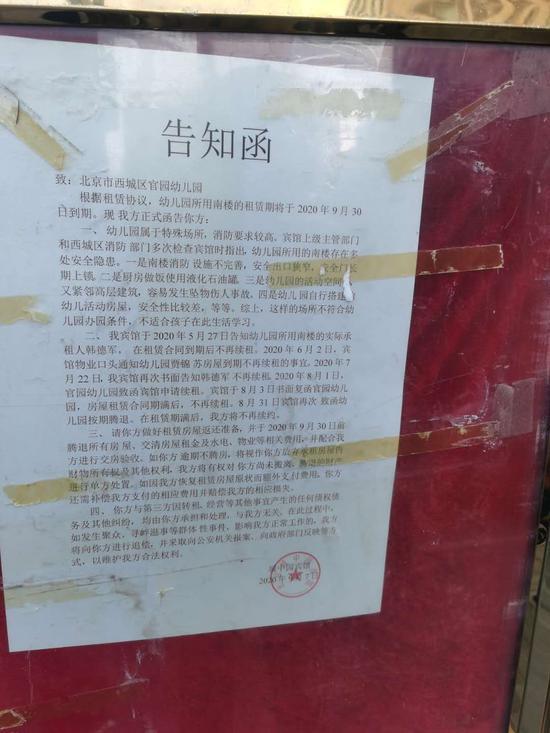 告知函
致：北京市西城区官园幼儿园
根据租赁协议，幼儿园所用南楼的租赁期将于 2020 年 9 月 30
日到期。现 我方正式函告你方：
一、幼儿园属于特殊场所，消防要求较高。宾馆上级主管部门
和西城区消防 部门多次检查宾馆时指出，幼儿园所用的南楼存在多
处安全隐患。一是南楼消防 设施不完善，安全出口狭窄，安全门长
期上锁。二是厨房做饭使用液化石油罐。三是幼儿园的活动空间
又紧邻高层建筑，容易发生坠物伤人事故。四是幼儿 园自行搭建
幼儿活动房屋，安全性比较差，等等。综上，这样的场所不符合幼
儿园办园条件，不适合孩子在此生活学习。
二、我宾馆于 2020 年 5 月 27 日告知幼儿园所用南楼的实际承
租人韩德军， 在租赁合同到期后不再续租。2020 年 6 月 2 日，宾
馆物业口头通知幼儿园贾锦 苏房屋到期不再续租的事宜。2020 年 7
月 22 日，我宾馆再次书面告知韩德军 不再续租。2020 年 8 月 1 日，
官园幼儿园致函宾馆申请续租。宾馆于 8 月 3 日书面复函官园幼儿
园，房屋租赁合同期满后，不再续租。8 月 31 日宾馆再次 致函幼
儿园按期腾退。在租赁期满后，我方将不再续约。
三、请你方做好租赁房屋返还准备，并于 2020 年 9 月 30 日前
腾退所有房屋、交清房屋租金及水电、物业等相关费用，并配合我
方进行交房验收。如你方 逾期不腾房，将视作你方放弃承租房屋内
财物所有权及其他权利。我方将有权对 你方尚未搬离、腾退的财产
进行单方处置。如因我方恢复租赁房屋原状而额外支付费用，你方
还需补偿我方支付的相应费用并赔偿我方的相应损失。
四、 你方与第三方因转租、经营等其他事宜产生的任何债权债
务及其他纠纷，均由你方承担和处理，与我方无关。在此过程中，
如发生聚众、寻衅滋事等群体 性事件，影响我方正常工作的，我方
将向你方进行追偿，并采取向公安机关报案、向政府部门反映等方
式，以维护我方合法权利。
宾馆
2020 年 月 7 日